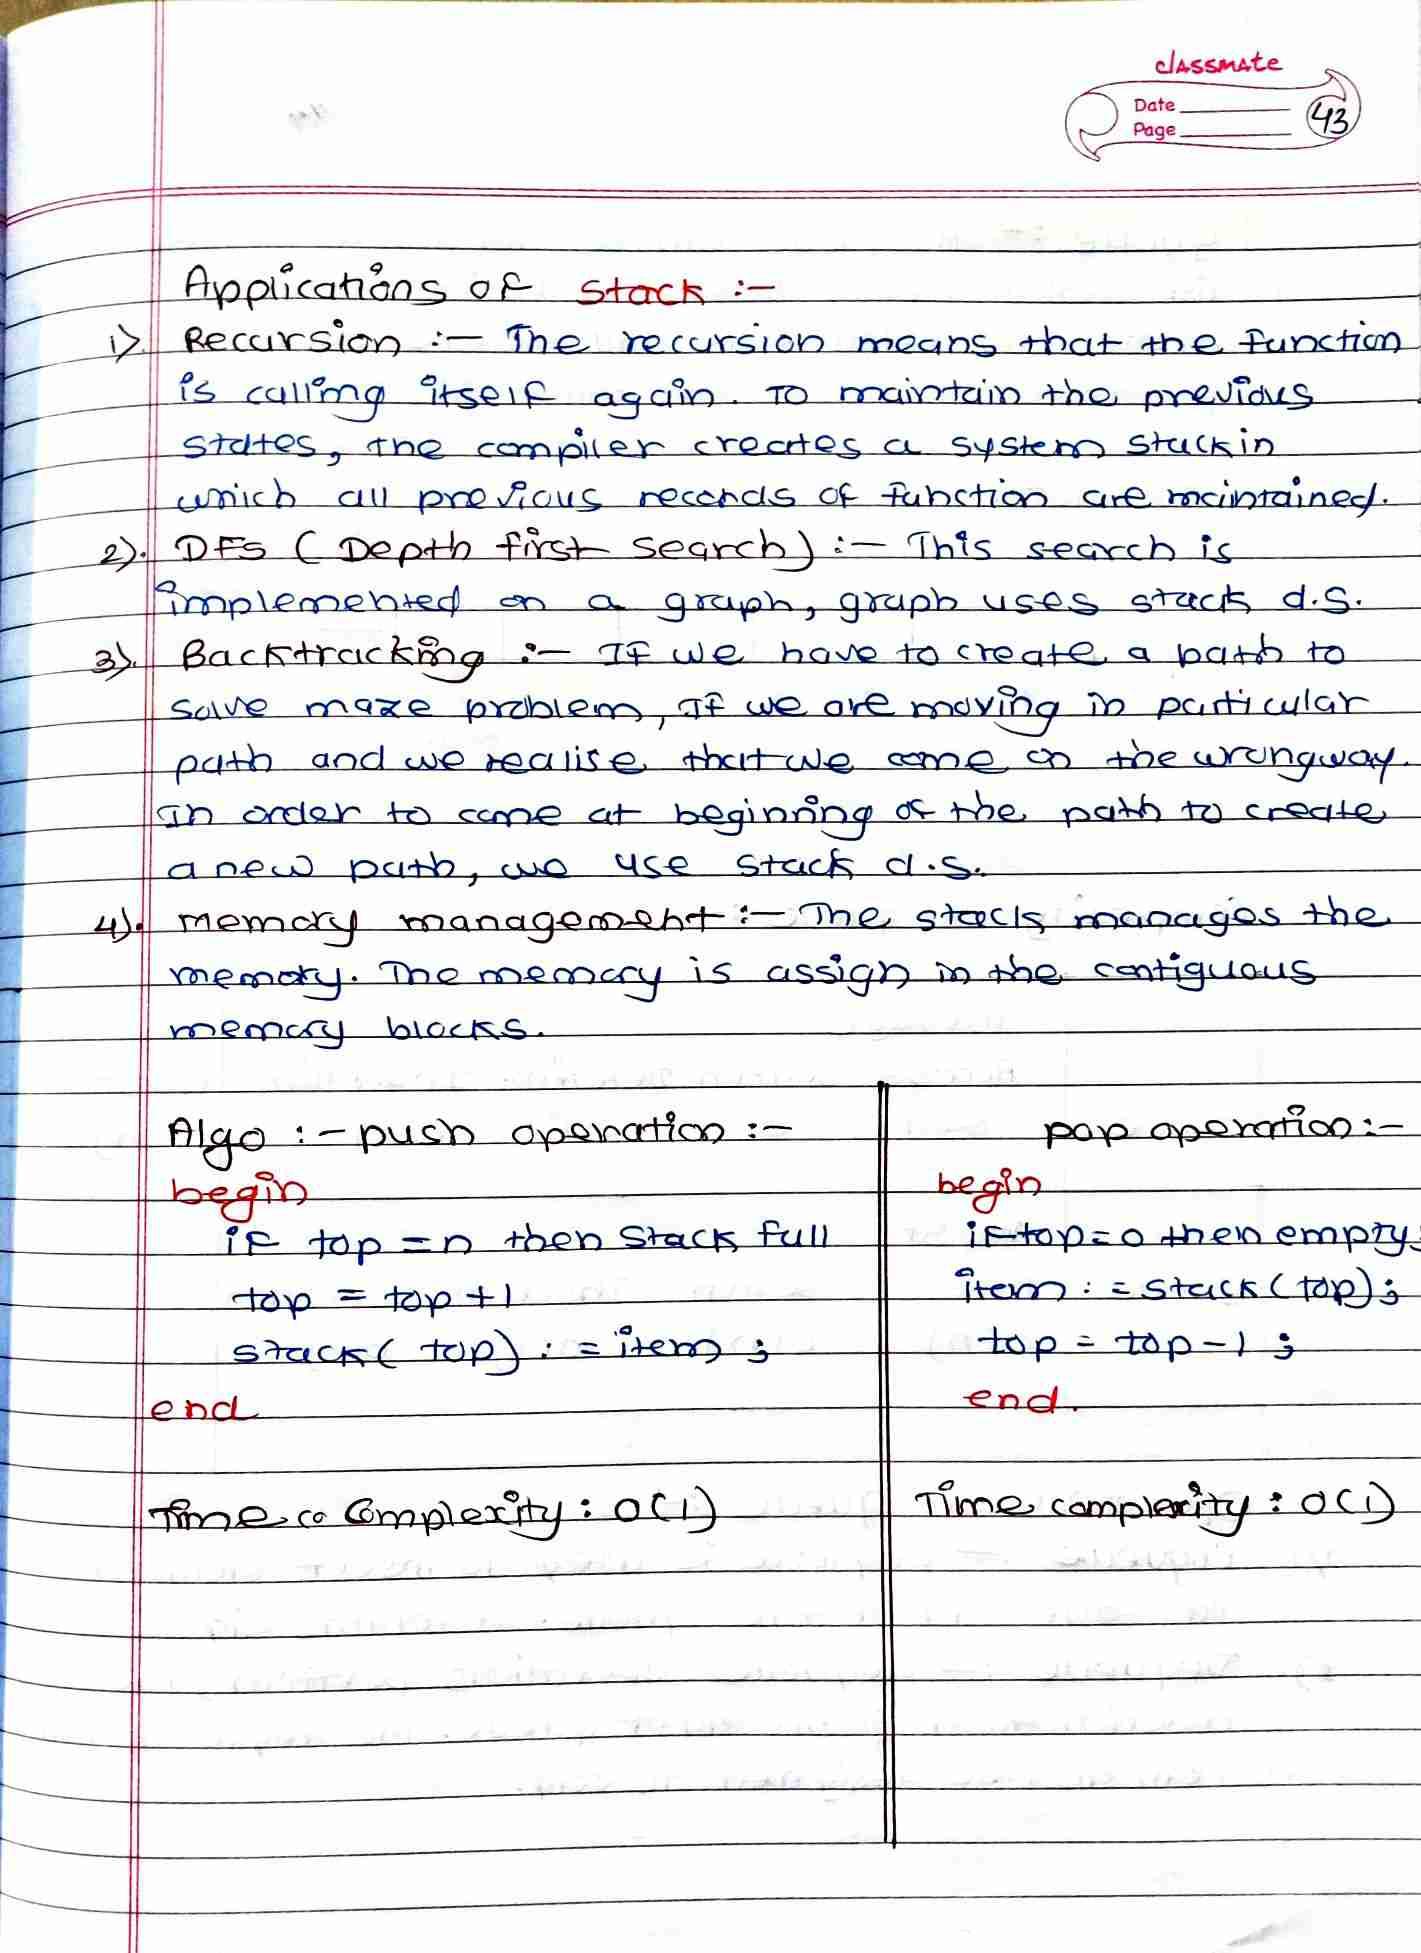 classmate
Date
Page
43
Applications of Stack :-
1). Recursion :- The recursion means that the function
is calling itself again. To maintain the previous
states, the compiler creates a system stack in
which all previous records of function are maintained.
2). DFS (Depth first search) :- This search is
implemented on a graph, graph uses stack d.s.
3). Backtracking :- If we have to create a path to
solve maze problem, If we are moving in particular
path and we realise that we come on the wrong way.
In order to come at beginning of the path to create
a new path, we use stack d.s.
4). memory management :- The stack manages the
memory. The memory is assign in the contiguous
memory blocks.
Algo :- push operation :-
begin
if top = n then Stack full
top = top + 1
stack( top) := item ;
end
Time co Complexity : O(1)
pop operation :-
begin
if top = 0 then empty;
item := stack (top);
top = top - 1 ;
end.
Time complexity : O(1)